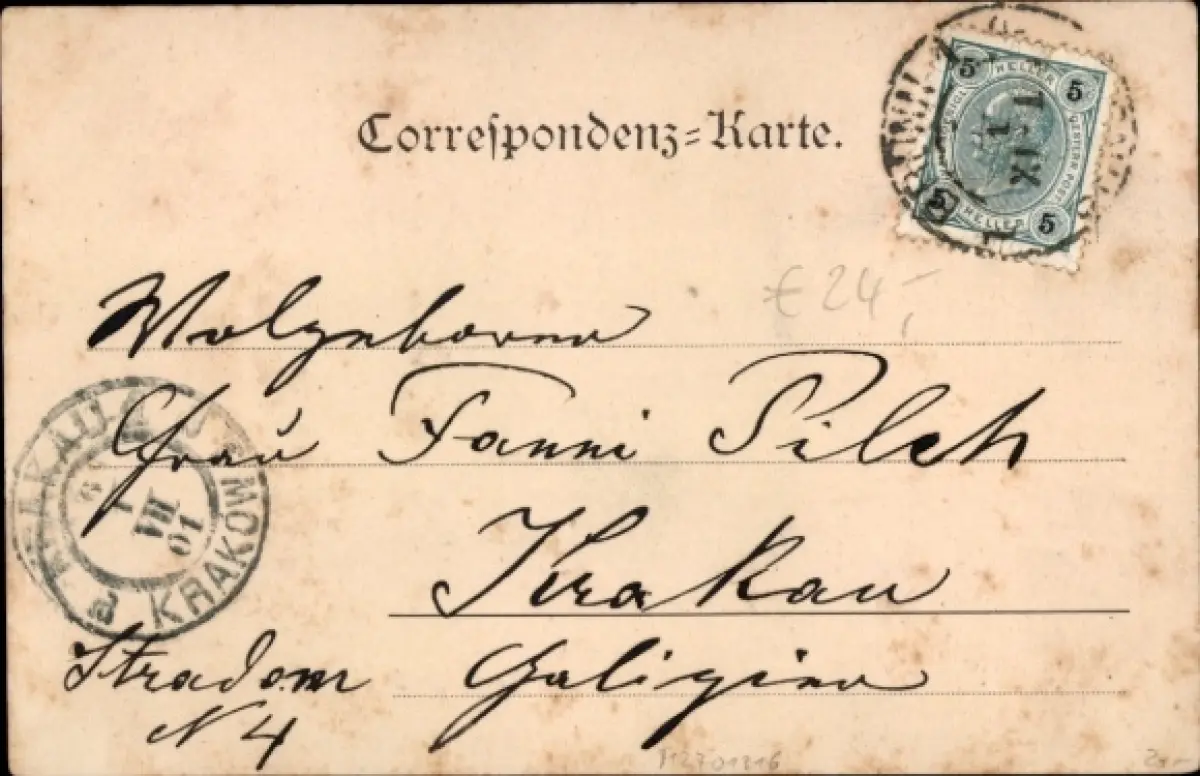 Correspondenz=Karte.
5 HELLER 5
5 HELLER 5
€ 24,-
Wolgeborne
Frau Fanni Pilch
Krakau
Stradom Galizien
N 4
KRAKAU
KRAKÓW
1
VII
01
a